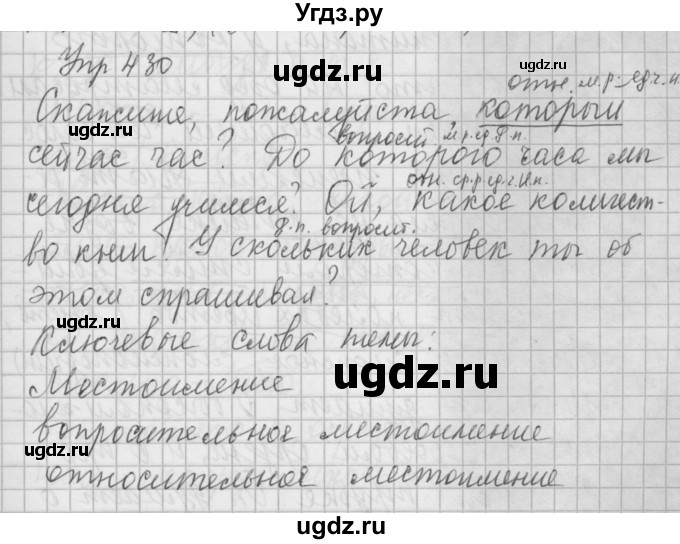 Угдз.ру
Упр 430
отн. м.р. ед.ч. и.
Скажите, пожалуйста, который
вопросит. м.р. ед. р.п.
сейчас час? До которого часа мы
отн. ср.р ед.ч. И.п.
сегодня учимся? Ой, какое количест-
р.п. вопросит.
во книг! У скольких человек ты об
этом спрашивал?
Ключевые слова темы:
Местоимение
вопросительное местоимение
относительное местоимение
ugdz.ru
ugdz.ru
ugdz.ru
ugdz.ru
ugdz.ru
ugdz.ru
ugdz.ru
ugdz.ru
ugdz.ru